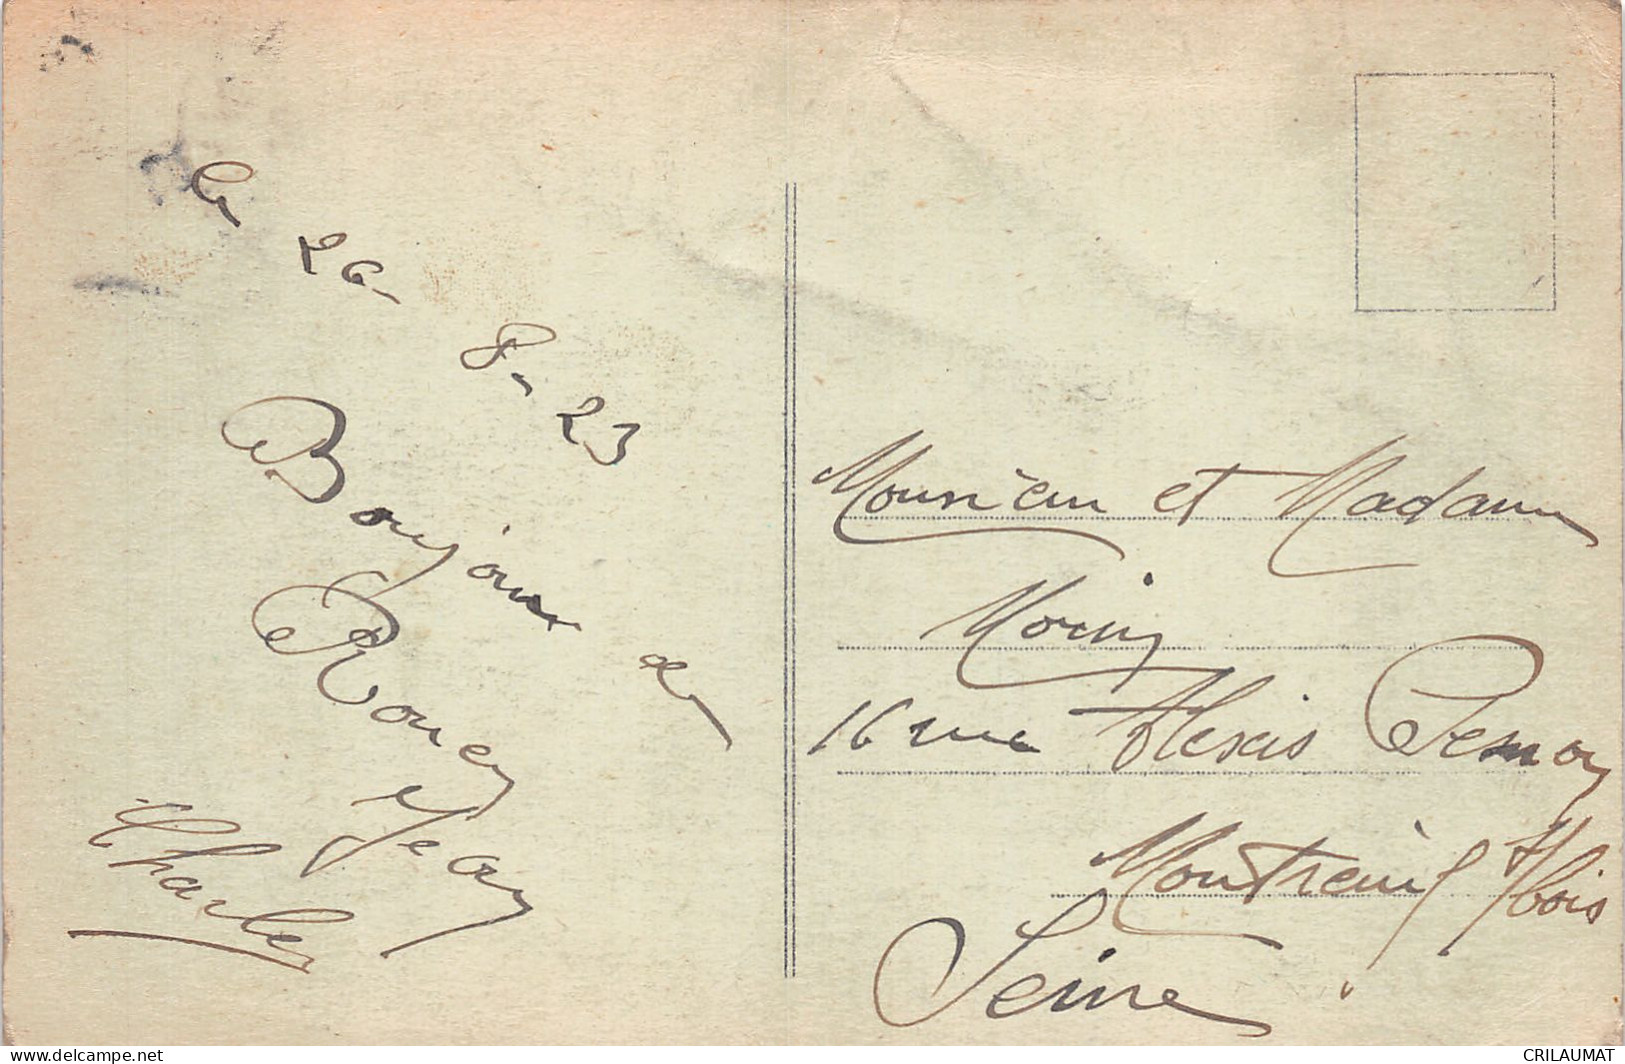 le 26-8-23
Bonjour de
Rouen
Jean
Charles
Monsieur et Madame
16 rue Alexis Pesnon
Montreuil s/bois
Seine
delcampe.net
CRILAUMAT